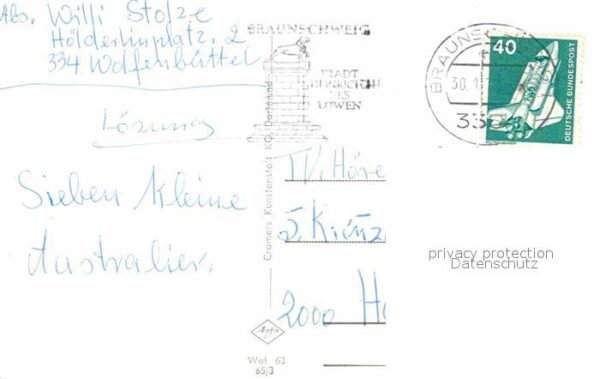 Abs. Willi Stolze
Hölderlinplatz. 2
334 Wolfenbüttel
Lösung
Sieben kleine
Australier.
BRAUNSCHWEIG
STADT
HEINRICHS
DES
LÖWEN
Cramers Kunstanstalt KG, Dortmund
Agfa
Wol 63
65/3
TV, Höre
2000 Ha
BRAUNSC
30.1
33
40
DEUTSCHE BUNDESPOST
privacy protection
Datenschutz